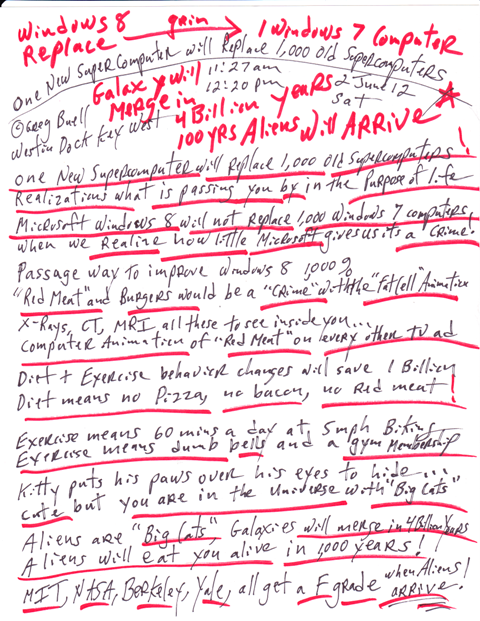 Windows 8 gain 1 Windows 7 Computer
Replace
One New SuperComputer will Replace 1,000 Old Supercomputers
Galaxy will 11:27am
12:20 pm
Merge in 4 Billion Years
2 June 12
Sat
100 YRS Aliens Will ARRIVE
©Greg Buell
Westin Dock Key West
One New Supercomputer will Replace 1,000 Old Supercomputers!
Realizations what is passing you by in the Purpose of life
Microsoft Windows 8 will not Replace 1,000 Windows 7 computers,
when we Realize how little Microsoft gives us its a crime!
Passage way to improve Windows 8 1000%
"Red Meat" and Burgers would be a "Crime" with the "Fat Cell" Animation
X-Rays, CT, MRI all these to see inside you...
Computer Animation of "Red Meat" on every other TV ad
Diet + Exercise behavior changes will save 1 Billion
Diet means no Pizza, no bacon, no Red meat!
Exercise means 60 mins a day at 5mph Biking
Exercise means dumb bells and a gym Membership
Kitty puts his paws over his eyes to hide...
cute but you are in the Universe with "Big Cats"
Aliens are "Big Cats", Galaxies will merge in 4 Billion Years
Aliens will eat you alive in 1,000 years!
MIT, NASA, Berkeley, Yale, all get a F grade when Aliens
arrive!